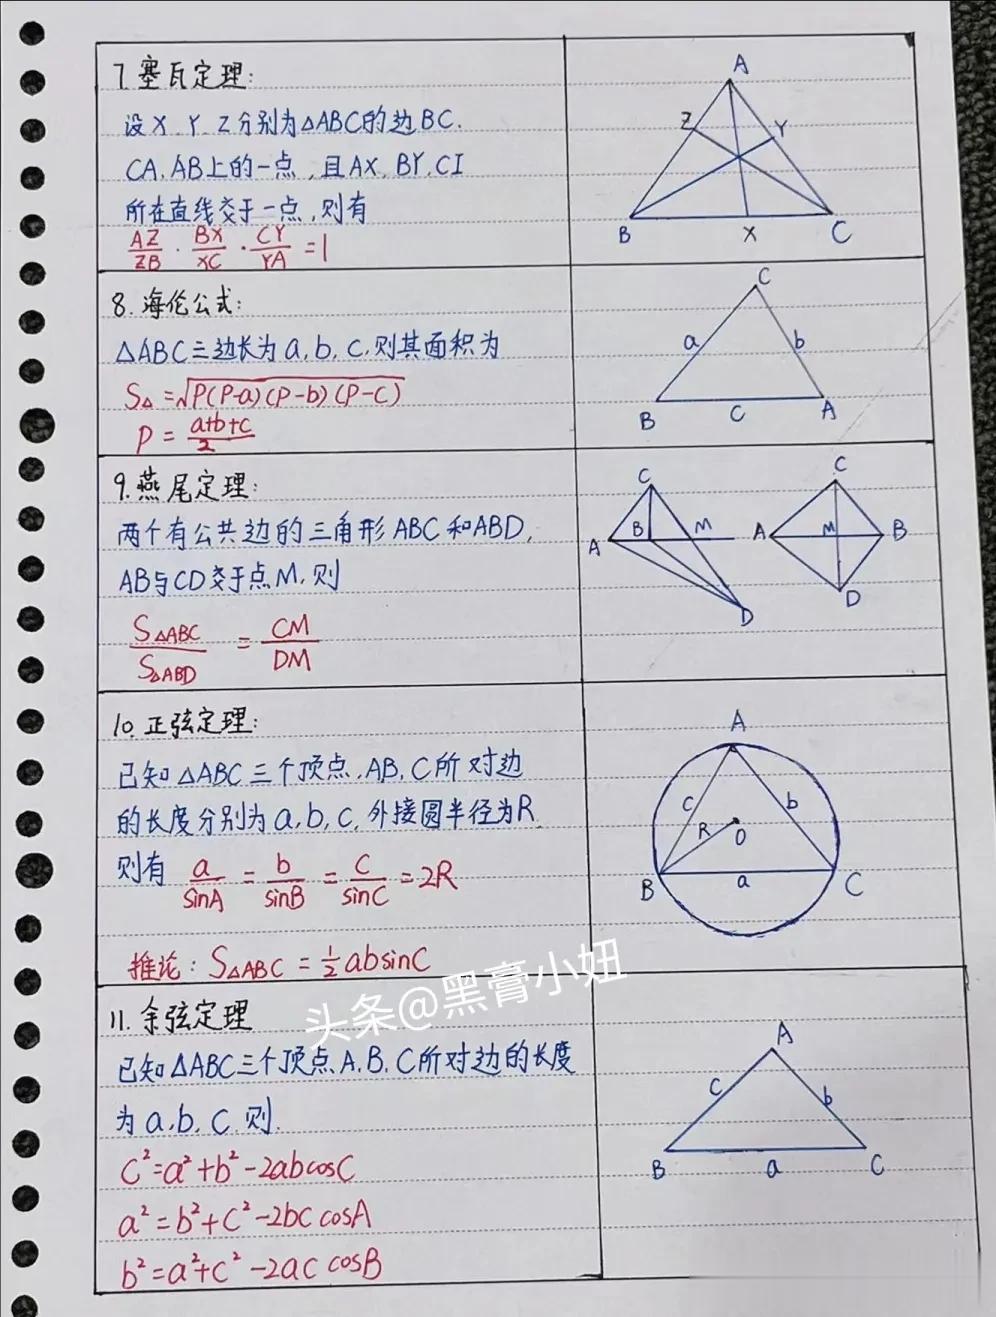 7. 塞瓦定理:
设X、Y、Z分别为△ABC的边BC.
CA、AB上的一点,且AX、BY、CI
所在直线交于一点,则有
AZ/ZB · BX/XC · CY/YA = 1
A
Z
Y
B
X
C
8. 海伦公式:
△ABC三边长为a,b,c,则其面积为
S△=√P(P-a)(P-b)(P-c)
P = a+b+c/2
C
a
b
B
C
A
9. 燕尾定理:
两个有公共边的三角形ABC和ABD,
AB与CD交于点M,则
S△ABC/S△ABD = CM/DM
C
A
B
M
D
C
A
M
B
D
10. 正弦定理:
已知△ABC三个顶点,AB,C所对边
的长度分别为a,b,c,外接圆半径为R.
则有 a/sinA = b/sinB = c/sinC = 2R
推论: S△ABC = ½absinC
A
c
b
R
O
B
a
C
头条@黑膏小妞
11. 余弦定理
已知△ABC三个顶点A,B,C所对边的长度
为a,b,c,则.
C²=a²+b²-2abcosC
a²=b²+C²-2bc cosA
b²=a²+C²-2ac cosB
A
c
b
B
a
C